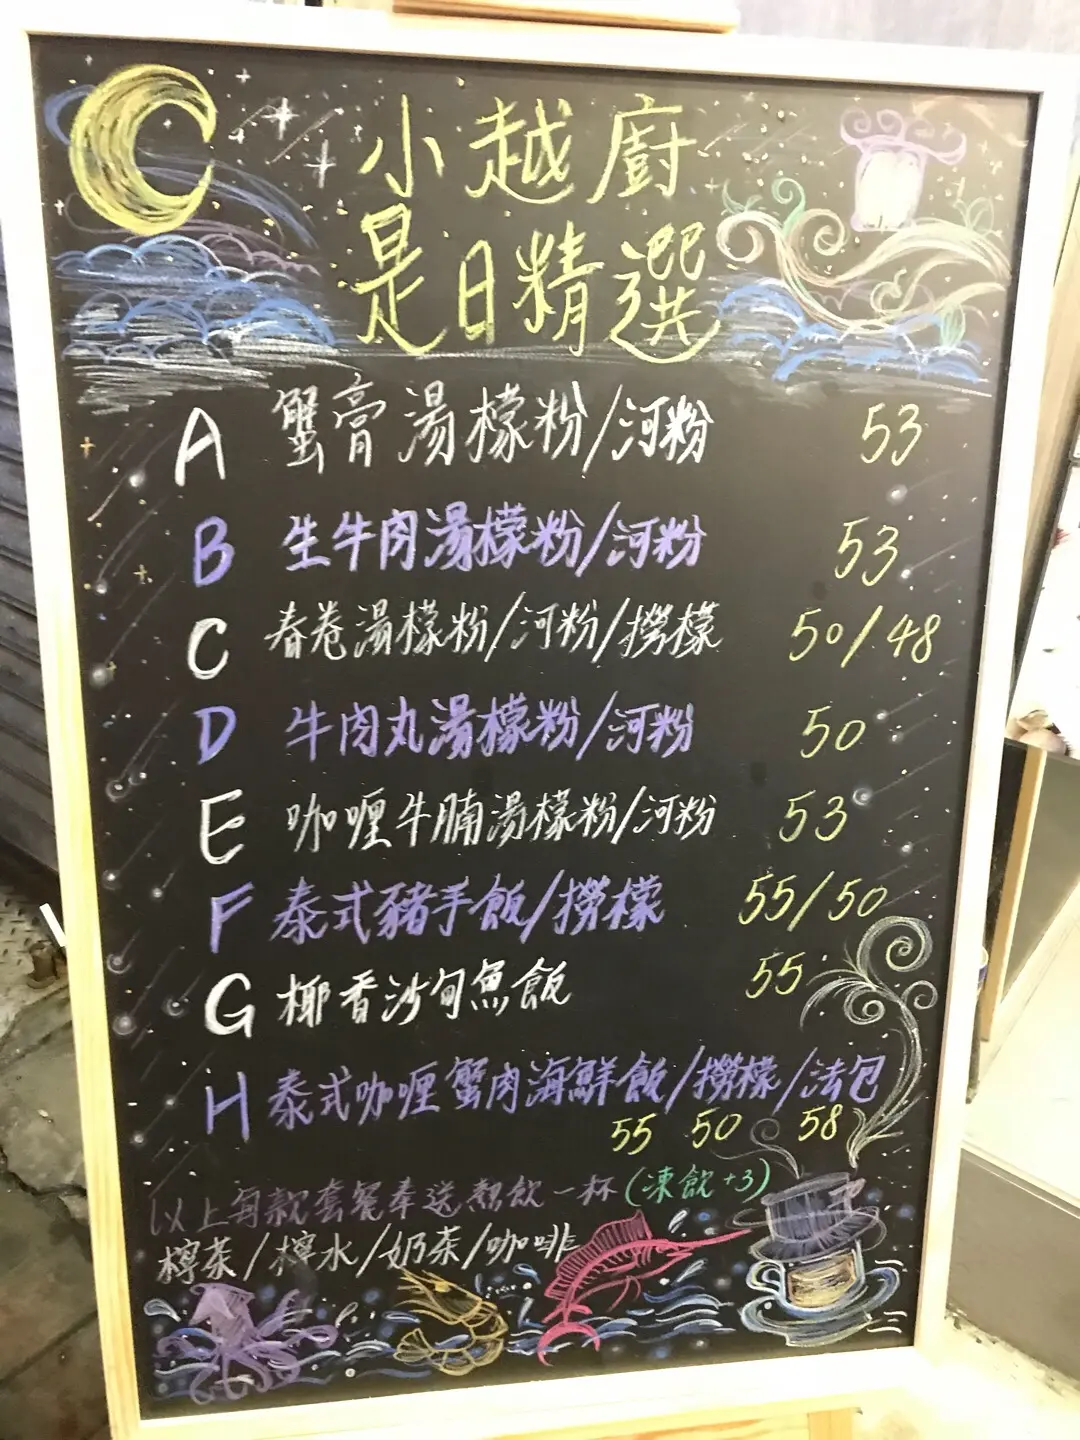 小越廚
是日精選
A 蟹膏湯檬粉/河粉 53
B 生牛肉湯檬粉/河粉 53
C 春卷湯檬粉/河粉/撈檬 50/48
D 牛肉丸湯檬粉/河粉 50
E 咖喱牛腩湯檬粉/河粉 53
F 泰式豬手飯/撈檬 55/50
G 椰香沙甸魚飯 55
H 泰式咖喱蟹肉海鮮飯/撈檬/法包
55 50 58
以上每款套餐奉送熱飲一杯(凍飲+3)
檸茶/檸水/奶茶/咖啡